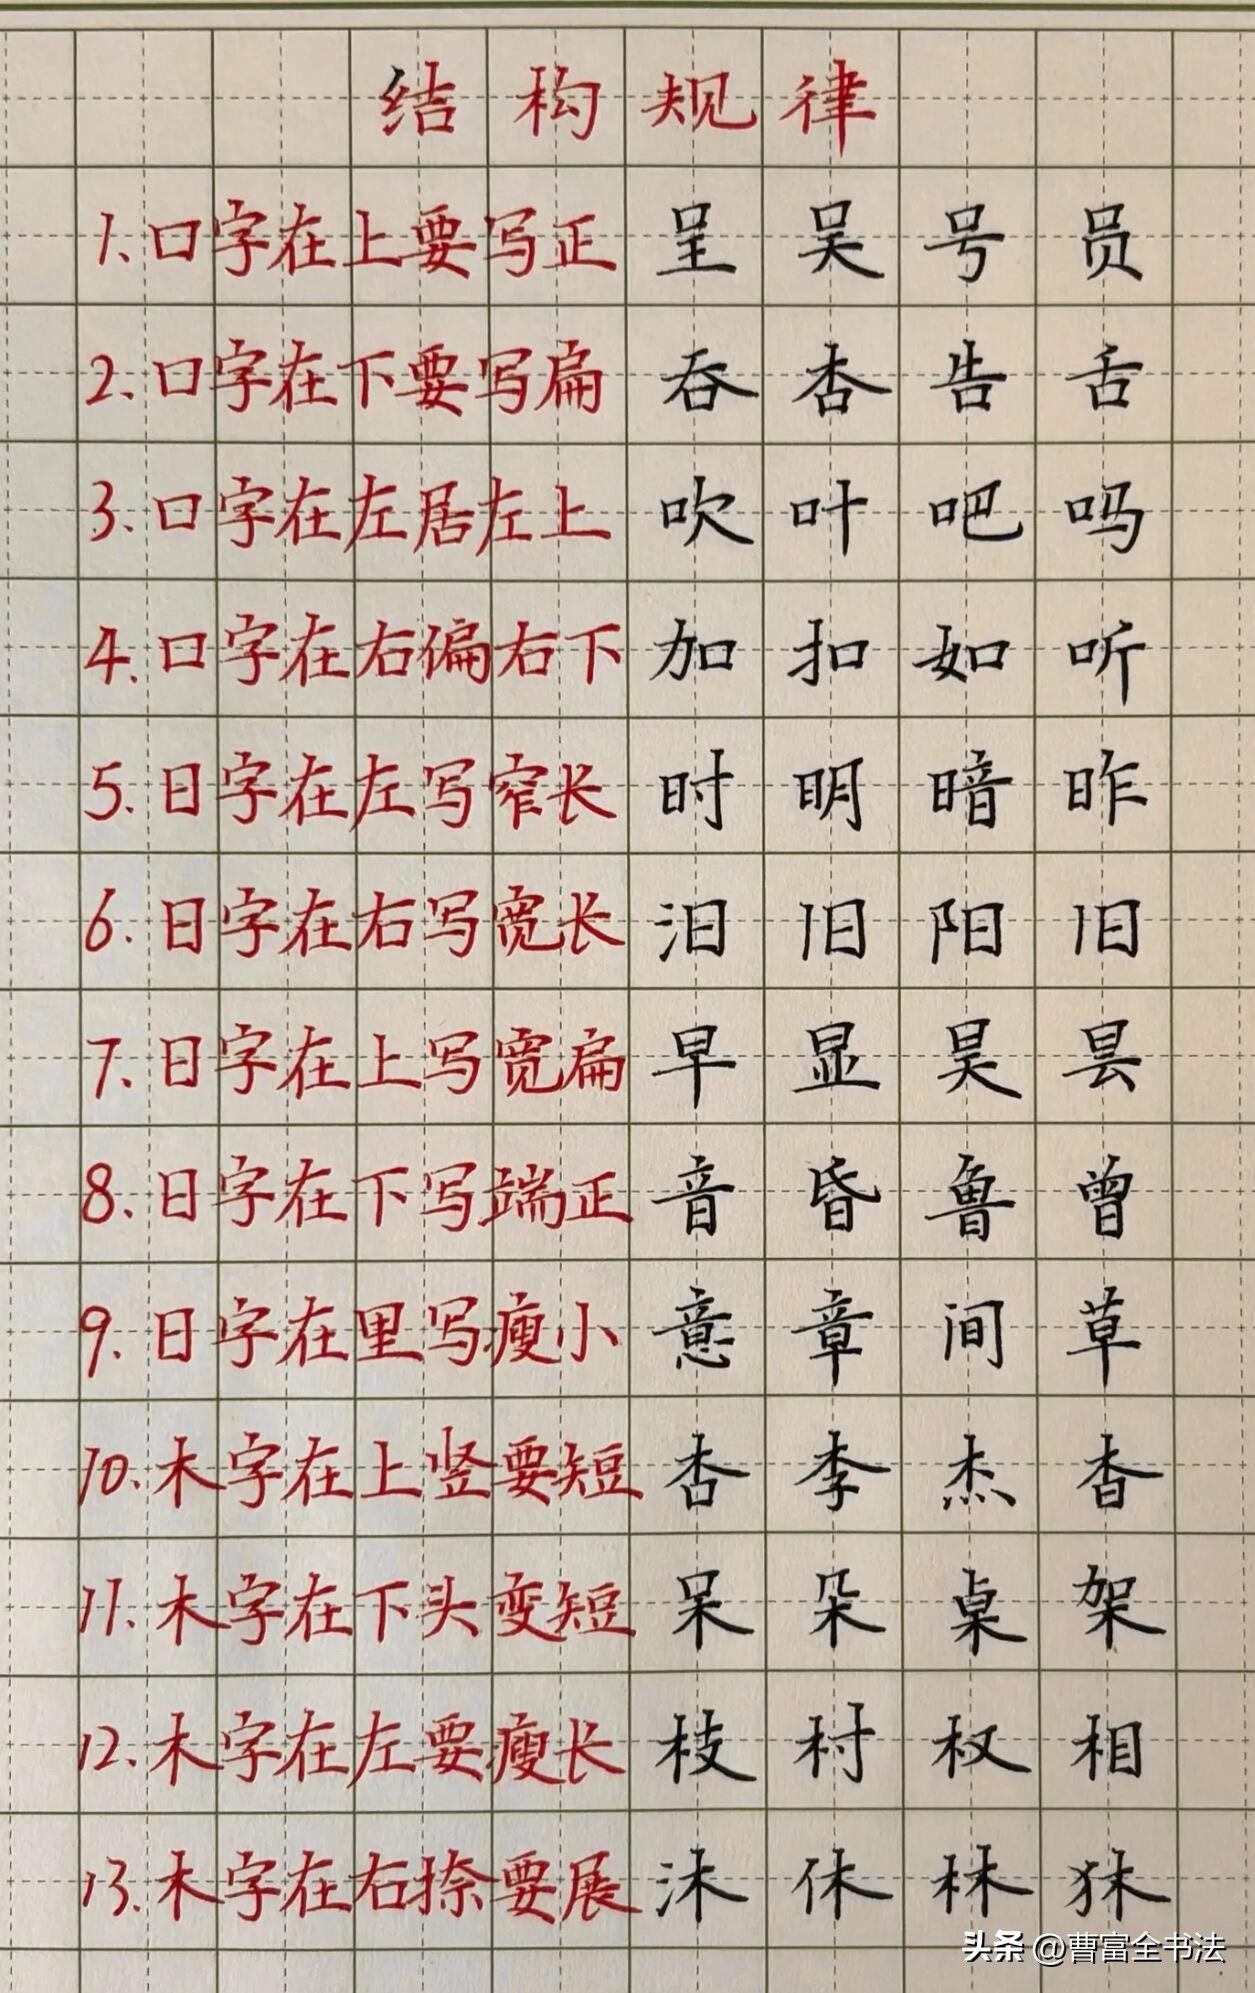 结构规律
1.口字在上要写正 呈 吴 号 员
2.口字在下要写扁 吞 杏 告 舌
3.口字在左居左上 吹 叶 吧 吗
4.口字在右偏右下 加 扣 如 听
5.日字在左写窄长 时 明 暗 昨
6.日字在右写宽长 汨 旧 阳 旧
7.日字在上写宽扁 早 显 昊 昙
8.日字在下写端正 音 昏 鲁 曾
9.日字在里写瘦小 意 章 间 草
10.木字在上竖要短 杏 李 杰 杳
11.木字在下头变短 呆 朵 桌 架
12.木字在左要瘦长 枝 村 权 相
13.木字在右捺要展 沐 休 林 㹯
头条 @曹富全书法